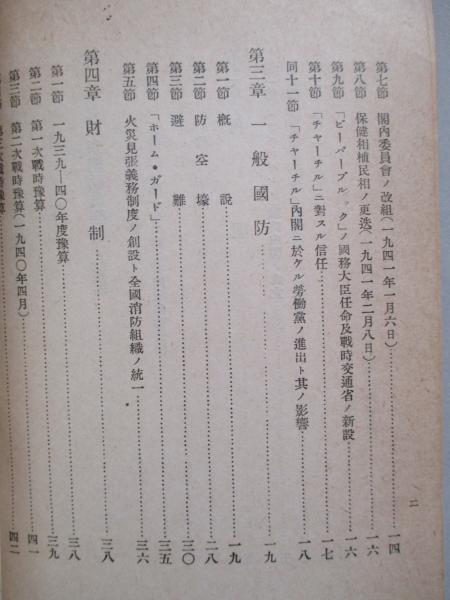 第七節 閣內委員會ノ改組(一九四一年一月六日)……一四
第八節 保健相植民相ノ更迭(一九四一年二月八日)……一六
第九節 「ビーバーブルック」ノ國務大臣任命及戰時交通省ノ新設……一六
第十節 「チャーチル」ニ對スル信任……一七
同十一節 「チャーチル」內閣ニ於ケル勞働黨ノ進出ト其ノ影響……一八
第三章 一般國防……一九
第一節 槪說……一九
第二節 防空壕……二八
第三節 避難……三〇
第四節 「ホーム・ガード」……三五
第五節 火災見張義務制度ノ創設ト全國消防組織ノ統一……三六
第四章 財制……三八
第一節 一九三九—四〇年度豫算……三八
第二節 第一次戰時豫算……三九
第三節 第二次戰時豫算(一九四〇年四月)……四一
第三次戰時豫算……四二
二